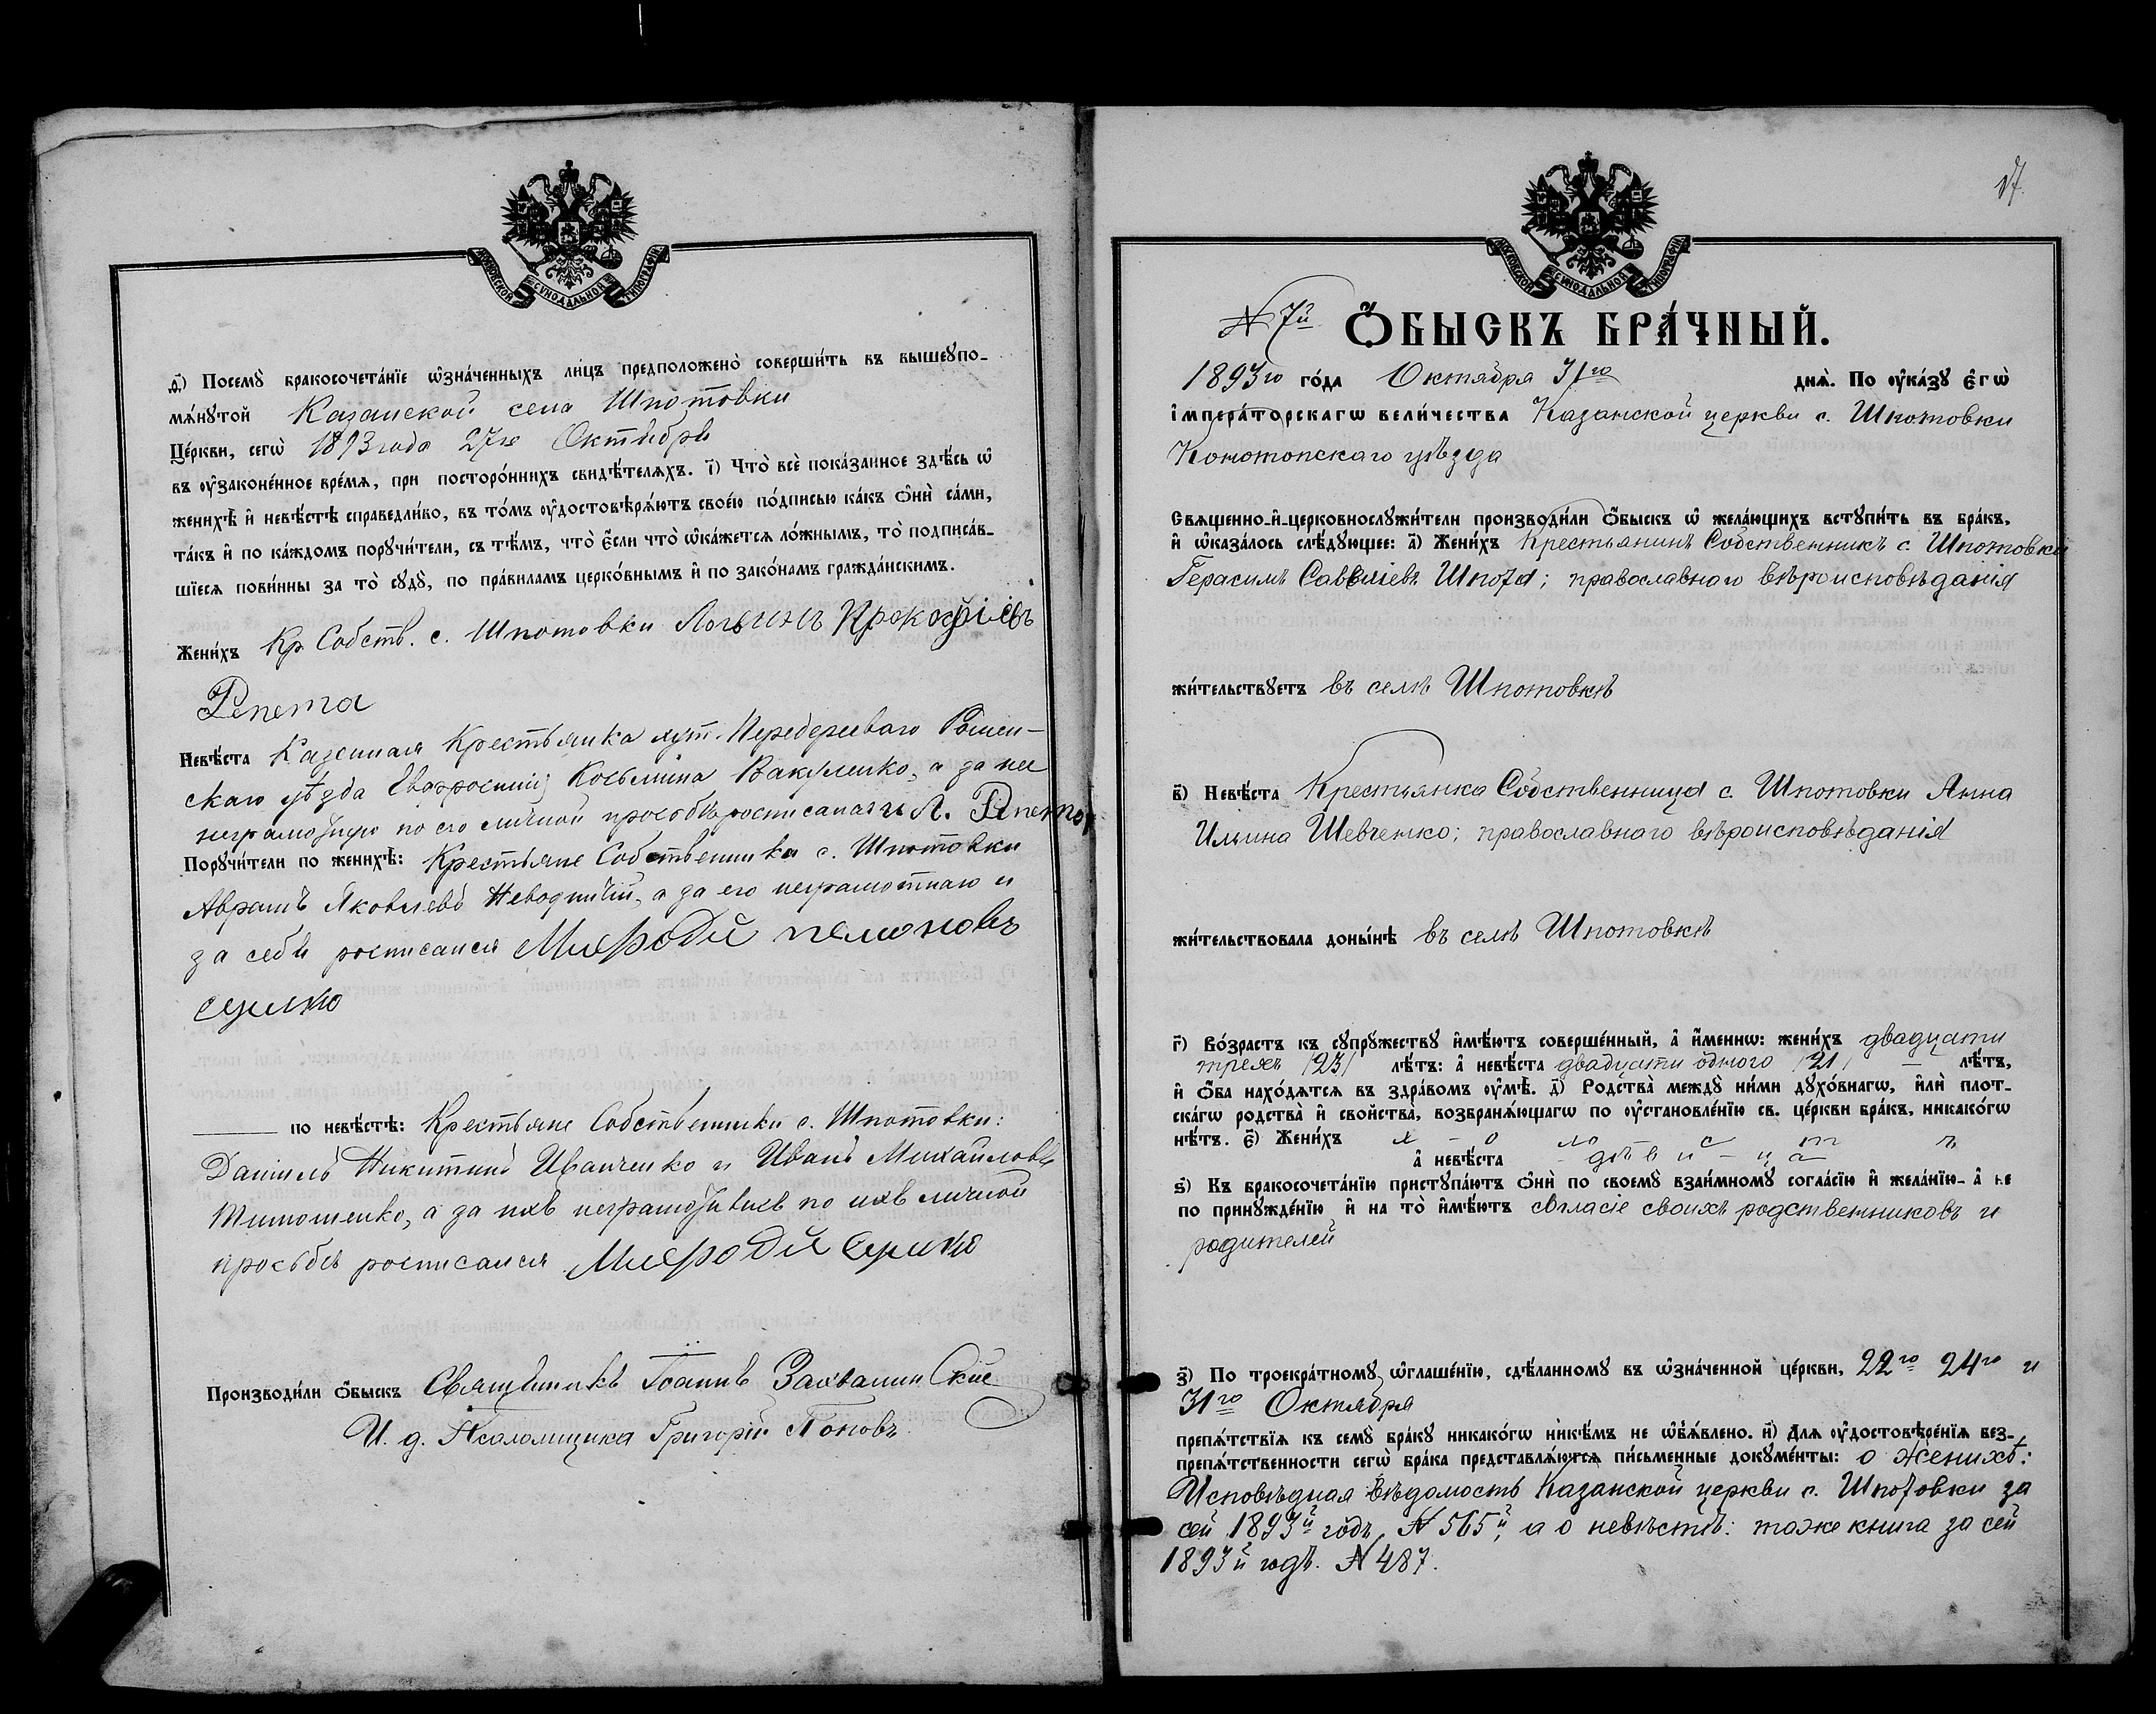 МОСКОВСКОЙ СѴНОДАЛЬНОЙ ТИПОГРАФІИ
д҃) Посемꙋ̀ бракосочета́нїе ѡ҆зна́ченныхъ ли́цъ предположено̀ соверши́ть въ вышеꙋпо-
мѧ́нꙋтой Казанской села Шпотовки
Це́ркви, сегѡ̀ 1893 года 27го Октября
въ ᲂу҆законе́нное вре́мѧ, при посторо́ннихъ свидѣ́телѧхъ. і҃) Что̀ всѐ пока́занное здѣ́сь ѡ҆
женихѣ̀ и҆ невѣ́стѣ справедли́во, въ то́мъ ᲂу҆достовѣрѧ́ютъ свое́ю по́дписью ка́къ ѻ҆нѝ са́ми,
та́къ и҆ по ка́ждомъ порꙋчи́тели, съ тѣ́мъ, что̀ є҆́сли что̀ ѡ҆ка́жетсѧ ло́жнымъ, то̀ подписа́в-
шїесѧ пови́нны за то̀ сꙋдꙋ̀, по пра́виламъ церко́внымъ и҆ по зако́намъ гражда́нскимъ.
Жени́хъ Кр. Собств. с. Шпотовки Логвинъ Прокофіевъ
Репета
Невѣ́ста Казенная Крестьянка хут. Передереваго Ромен-
скаго уѣзда Евфросинія Косьмина Вакуленко, а за нее
неграмотную по его личной просьбѣ росписался и Л. Репета
Порꙋчи́тели по женихѣ̀: Крестьяне Собственники с. Шпотовки
Аврамъ Яковлевъ Неводничій, а за его неграмотнаго и
за себя росписался Мефодій
по невѣ́стѣ: Крестьяне Собственники с. Шпотовки:
Даніилъ Никитинъ Иванченко и Иванъ Михайловъ
Тимошенко, а за ихъ неграмотныхъ по ихъ личной
просьбѣ росписался Мефодій
Производи́ли ѻ҆́быскъ Священникъ Іоаннъ
И. д. Псаломщика Григорій Поповъ
17.
МОСКОВСКОЙ СѴНОДАЛЬНОЙ ТИПОГРАФІИ
N 7й ѺБЫСКЪ БРА́ЧНЫЙ.
1893го го́да Октября 31го днѧ̀. По ᲂу҆ка́зꙋ є҆гѡ̀
і҆мпера́торскагѡ вели́чества Казанской церкви с. Шпотовки
Конотопскаго уѣзда
Свѧщенно-и҆-церковнослꙋжи́тели производи́ли ѻ҆́быскъ ѡ҆ жела́ющихъ встꙋпи́ть въ бра́къ,
и҆ ѡ҆каза́лось слѣ́дꙋющее: а҃) Жени́хъ Крестьянинъ Собственникъ с. Шпотовки
Герасимъ Савеліевъ Шпота; православнаго вѣроисповѣданія
жи́тельствꙋетъ въ селѣ Шпотовкѣ
в҃) Невѣ́ста Крестьянка Собственница с. Шпотовки Анна
Ильина Шевченко; православнаго вѣроисповѣданія
жи́тельствовала доны́нѣ въ селѣ Шпотовкѣ
г҃) Во́зрастъ къ сꙋпрꙋ́жествꙋ и҆мѣ́ютъ соверше́нный, а҆ и҆́меннѡ: жени́хъ двадцати
трехъ /23/ лѣ́тъ: а҆ невѣ́ста двадцати одного /21/ — лѣ́тъ,
и҆ ѻ҆́ба нахо́дѧтсѧ въ здра́вомъ ᲂу҆мѣ̀. д҃) Родства̀ междꙋ̀ ни́ми дꙋхо́внагѡ, и҆лѝ плот-
ска́гѡ родства̀ и҆ свойства̀, возбранѧ́ющагѡ по ᲂу҆становле́нїю св. це́ркви бра́къ, никако́гѡ
нѣ́тъ. є҃) Жени́хъ х - о ло с т ъ
а҆ невѣ́ста - дѣ в и - ц а
ѕ҃) Къ бракосочета́нїю пристꙋпа́ютъ ѻ҆нѝ по своемꙋ̀ взаи́мномꙋ согла́сїю и҆ жела́нїю- а҆ не
по принꙋжде́нїю и҆ на то̀ и҆мѣ́ютъ согласіе своихъ родственниковъ и
родителей
з҃) По троекра́тномꙋ ѡ҆глаше́нїю, сдѣ́ланномꙋ въ ѡ҆зна́ченной це́ркви, 22го 24го и
31го Октября
препѧ́тствїѧ къ семꙋ̀ бра́кꙋ никако́гѡ никѣ́мъ не ѡ҆б̾ѧ́влено. и҃) Длѧ ᲂу҆достовѣре́нїѧ без-
препѧ́тственности сегѡ̀ бра́ка представлѧ́ютсѧ пи́сьменные докꙋме́нты: о женихѣ:
Исповѣдная вѣдомость Казанской церкви с. Шпотовки за
сей 1893й годъ N 565й, а о невѣстѣ: тоже книга за сей
1893й годъ. N 487.